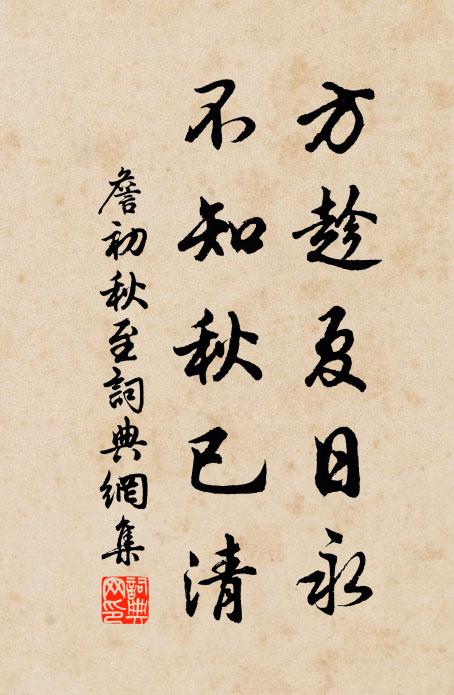 方趁夏日永
不知秋已清
詹初秋至詞典網集
詞典网印